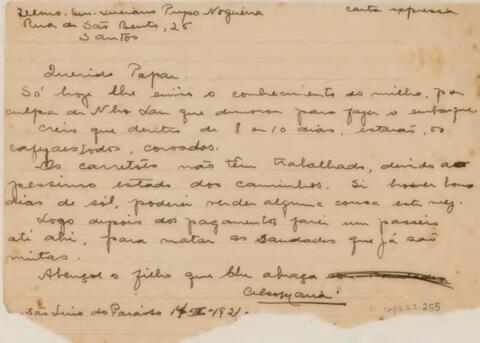 Illmo. Snr. Luciano Pupo Nogueira
carta expressa
Rua de São Bento, 26
Santos
Querido Papae.
Só hoje lhe envio o conhecimento do milho, por
culpa de Nho Lau que demorou para fazer o embarque
Creio que dentro de 8 a 10 dias, estarão, os
cafezaes todos, coroados.
Os carretões não têm trabalhado, devido ao
pessimo estado dos caminhos. Si houver bons
dias de sol, poderei vender alguma cousa este mez.
Logo depois dos pagamentos farei um passeio
até ahi, para matar as saudades que já são
muitas.
Abençoe o filho que lhe abraça
Celso Maria
São Luiz do Paraiso 14 II 1921.
255